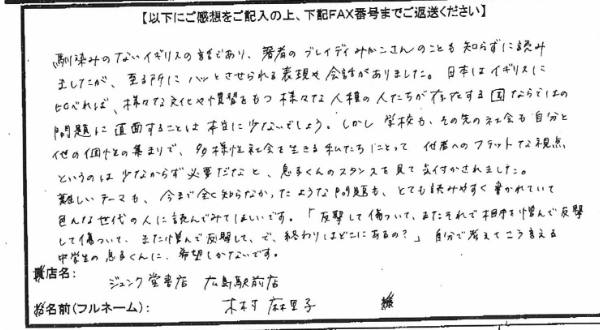 【以下にご感想をご記入の上、下記FAX番号までご返送ください】
馴染みのないイギリスの話であり、著者のブレイディみかこさんのことも知らずに読み
ましたが、至る所にハッとさせられる表現や会話がありました。日本はイギリスに
比べれば、様々な文化や慣習をもつ様々な人種の人たちが存在する国ならではの
問題に直面することは本当に少ないでしょう。しかし学校も、その先の社会も自分と
他の個性との集まりで、多様性社会を生きる私たちにとって他者へのフラットな視点
というのは少なからず必要だなと、息子くんのスタンスを見て気付かされました。
難しいテーマも、今まで全く知らなかったような問題も、とても読みやすく書かれていて
色んな世代の人に読んでみてほしいです。「反撃して傷ついて、またそれで相手を憎んで反撃
して傷ついて、また憎んで反撃して、で、終わりはどこにあるの?」自分で考えてこう言える
中学生の息子くんに、希望しかないです。
貴店名:
ジュンク堂書店 広島駅前店
お名前(フルネーム):
木村 麻里子
様